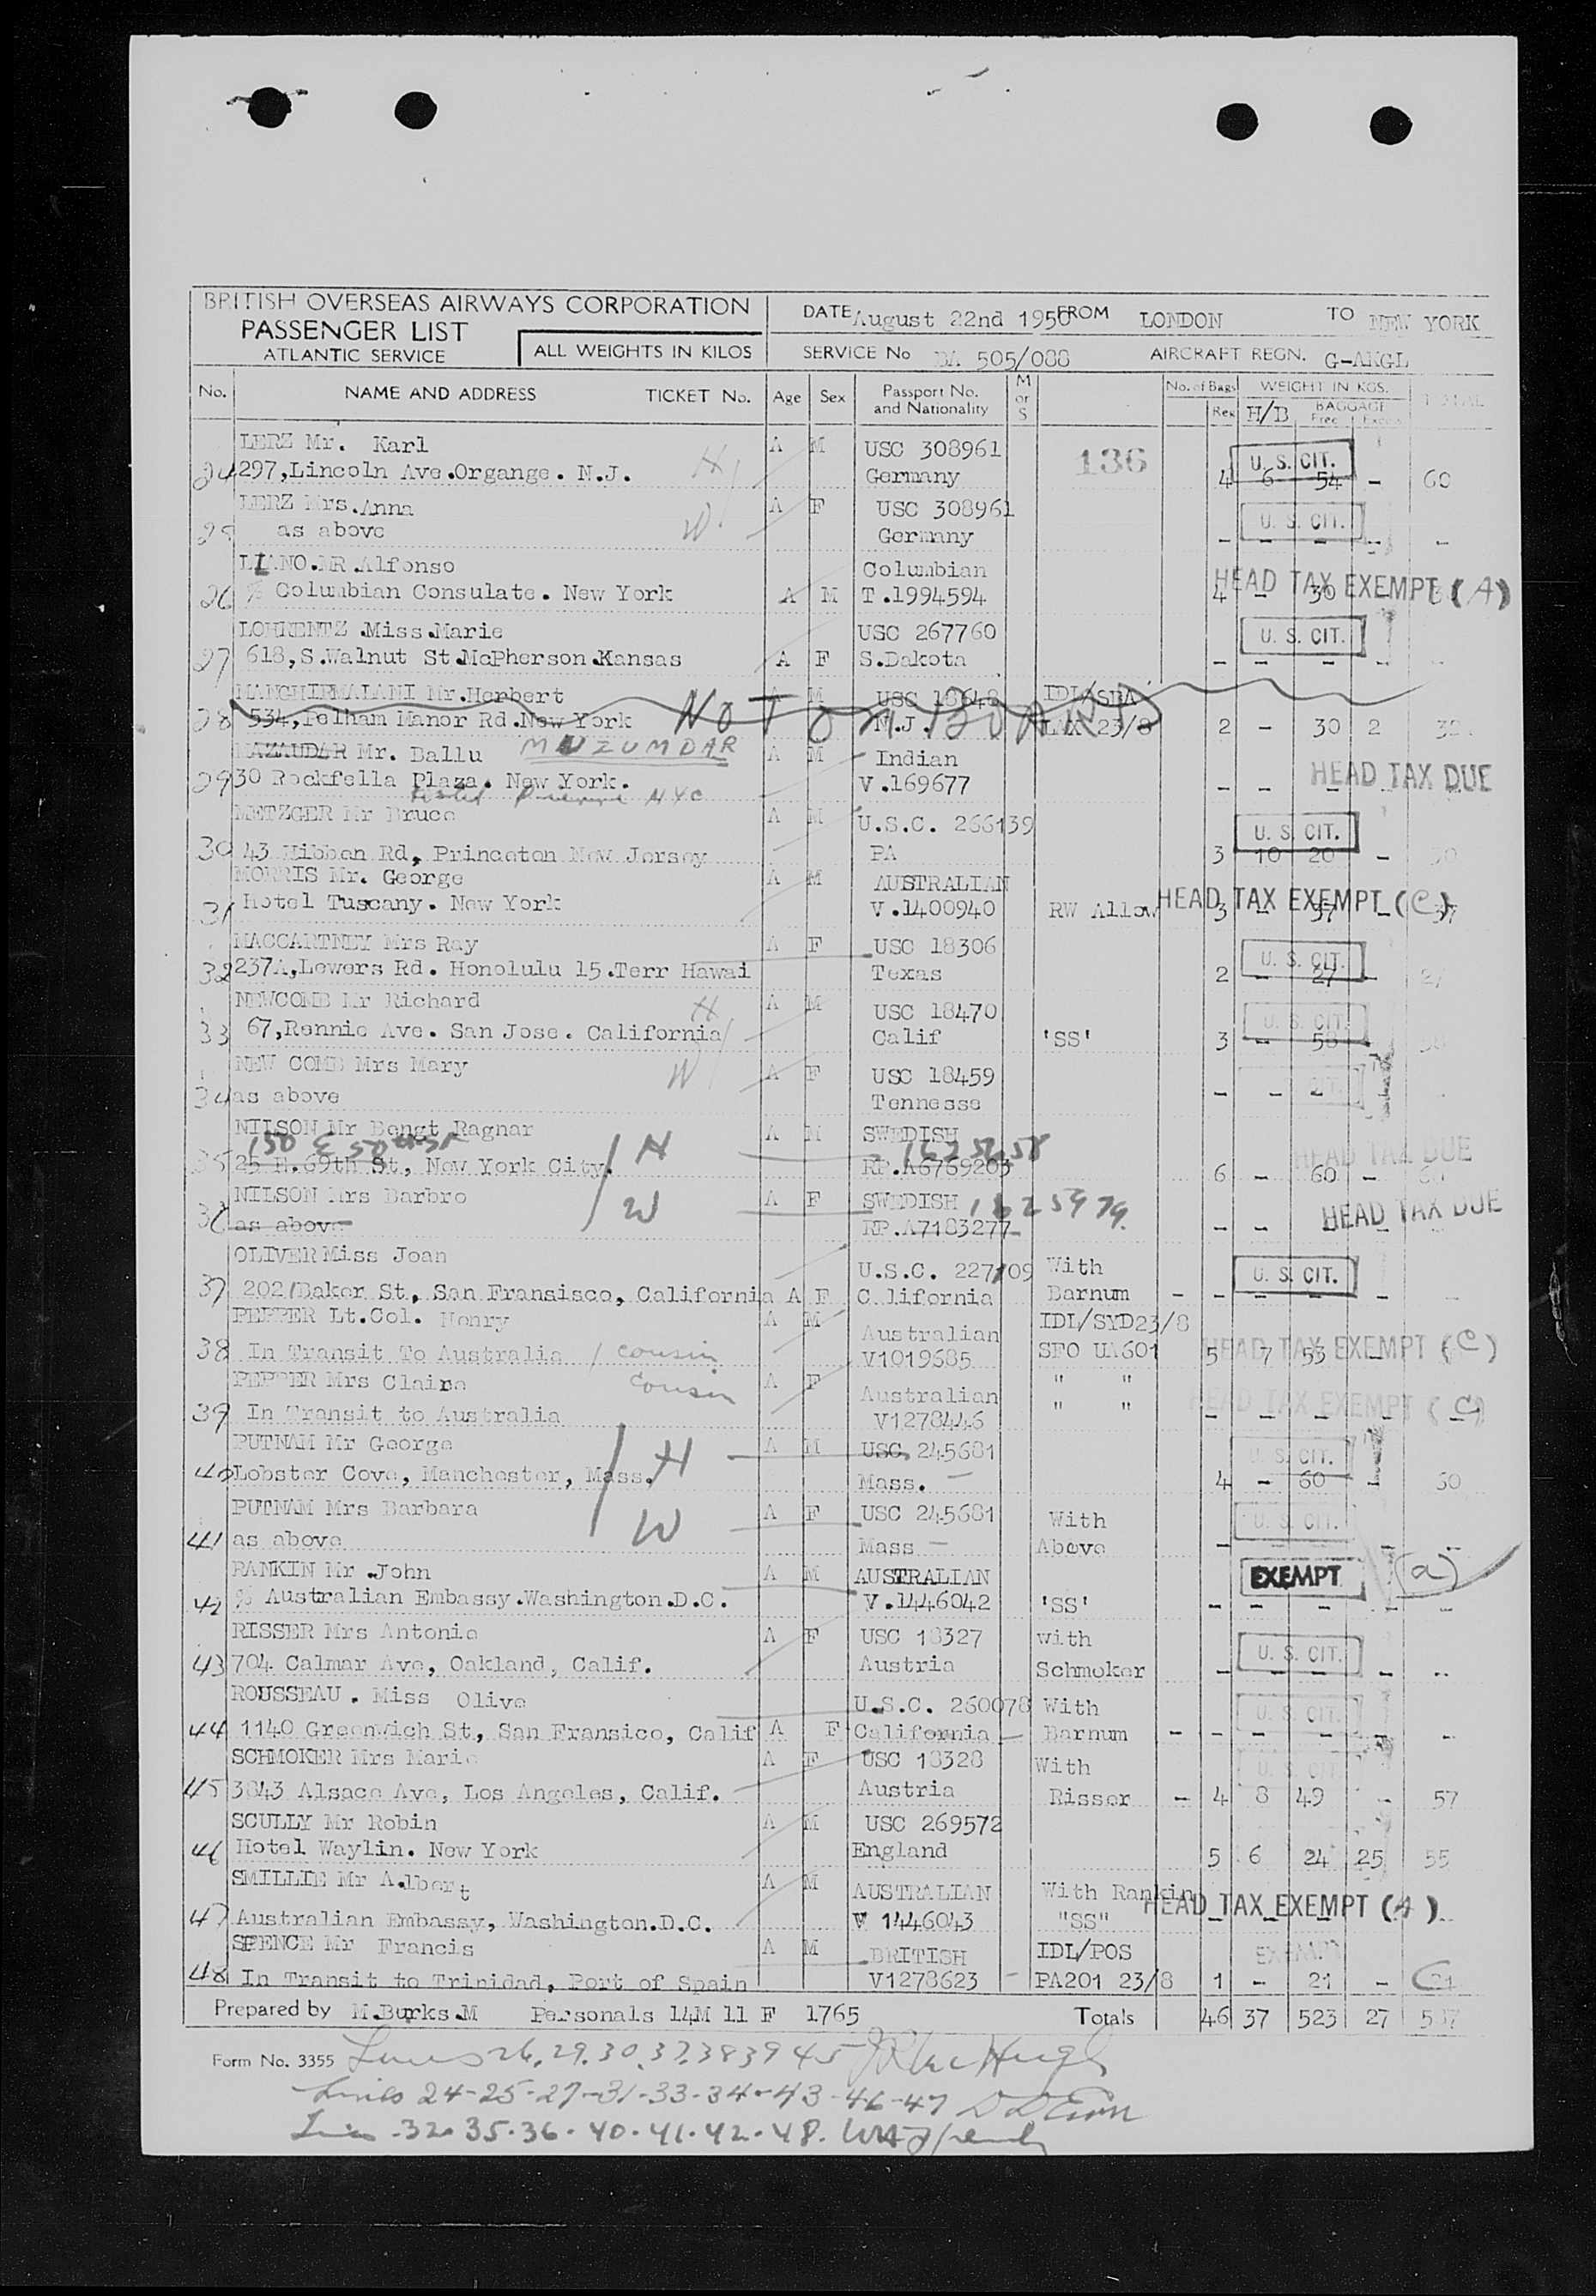 BRITISH OVERSEAS AIRWAYS CORPORATION
PASSENGER LIST
ATLANTIC SERVICE
ALL WEIGHTS IN KILOS
DATE August 22nd 1950 FROM LONDON TO NEW YORK
SERVICE No BA 505/088 AIRCRAFT REGN. G-AKGL
No. NAME AND ADDRESS TICKET No. Age Sex Passport No. and Nationality M or S No. of Bags WEIGHT IN KGS. TOTAL
Reg H/B BAGGAGE Free Excess
LERZ Mr. Karl A M USC 308961 136 U. S. CIT.
24 297,Lincoln Ave.Organge. N.J. H Germany 4 6 54 - 60
LERZ Mrs.Anna A F USC 308961 U. S. CIT.
25 as above W Germany - - - - -
LLANO.MR.Alfonso Columbian
26 % Columbian Consulate. New York A M T.1994594 4 - 30 - HEAD TAX EXEMPT (A)
LOHRENTZ.Miss.Marie USC 267760 U. S. CIT.
27 618,S.Walnut St.McPherson.Kansas A F S.Dakota - - - - -
MANGHIRMALANI Mr.Herbert A M USC 18648 IDL/SBA
NOT on BOARD
28 534,Pelham Manor Rd.New York N.J. LAX 23/8 2 - 30 2 32
MAZAUDAR Mr. Ballu MUZUMDAR A M Indian
29 30 Rockfella Plaza. New York. V.169677 - - - - HEAD TAX DUE
NYC
METZGER Mr Bruce A M U.S.C. 266139 U. S. CIT.
30 43 Hibben Rd, Princeton New Jersey PA 3 10 20 - 30
MORRIS Mr. George A M AUSTRALIAN
31 Hotel Tuscany. New York V.1400940 RW Allow 3 - 37 - 37 HEAD TAX EXEMPT (C)
MACCARTNEY Mrs Ray A F USC 18306 U. S. CIT.
32 237A,Lewers Rd. Honolulu 15.Terr Hawai Texas 2 - 27 - 27
NEWCOMB Mr Richard H A M USC 18470 U. S. CIT.
33 67,Rennie Ave. San Jose. California Calif 'SS' 3 - 58 58
NEW COMB Mrs Mary W A F USC 18459 CIT.
34 as above Tennesse - - -
NILSON Mr Bengt Ragnar A M SWEDISH
150 E 50th St H 1625658
35 25 E.69th St, New York City. RP.A6769203 6 - 60 - 60 HEAD TAX DUE
NILSON Mrs Barbro W A F SWEDISH 1625979.
36 as above RP.A7183277 - - - - HEAD TAX DUE
OLIVER Miss Joan U.S.C. 227109 With U. S. CIT.
37 202 Baker St, San Fransisco, California A F California Barnum - - - - - -
PEPPER Lt.Col. Henry A M Australian IDL/SYD23/8
38 In Transit To Australia cousin V1019685 SFO UA601 5 7 53 - HEAD TAX EXEMPT (C)
PEPPER Mrs Claire cousin A F Australian " "
39 In Transit to Australia V1278446 " " - - - - - HEAD TAX EXEMPT (C)
PUTNAM Mr George H A M USC 245681 U. S. CIT.
40 Lobster Cove, Manchester, Mass. Mass. 4 - 60 - 60
PUTNAM Mrs Barbara W A F USC 245681 With U. S. CIT.
41 as above Mass Above - - -
RANKIN Mr .John A M AUSTRALIAN EXEMPT (a)
42 % Australian Embassy.Washington.D.C. V.1446042 'SS' - - - - -
RISSER Mrs Antonie A F USC 18327 with U. S. CIT.
43 704 Calmar Ave, Oakland, Calif. Austria Schmoker - - - - -
ROUSSEAU. Miss Olive U.S.C. 260078 With U. S. CIT.
44 1140 Greenwich St, San Fransico, Calif A F California Barnum - - - - - -
SCHMOKER Mrs Marie A F USC 18328 With U. S. CIT.
45 3843 Alsace Ave, Los Angeles, Calif. Austria Risser - 4 8 49 - 57
SCULLY Mr Robin A M USC 269572
46 Hotel Waylin. New York England 5 6 24 25 55
SMILLIE Mr Albert A M AUSTRALIAN With Rankin
47 Australian Embassy, Washington.D.C. V 1446043 "SS" - - - - HEAD TAX EXEMPT (A)
SPENCE Mr Francis A M BRITISH IDL/POS EXEMPT
48 In Transit to Trinidad, Port of Spain V1278623 PA201 23/8 1 - 21 - 21
Prepared by M.Burks.M Personals 14M 11 F 1765 Totals 46 37 523 27 587
Form No. 3355 Lines 26.29.30.37.38 39 45
Lines 24-25-27-31-33-34-43-46-47
Lines -32.35.36.40.41.42.48.